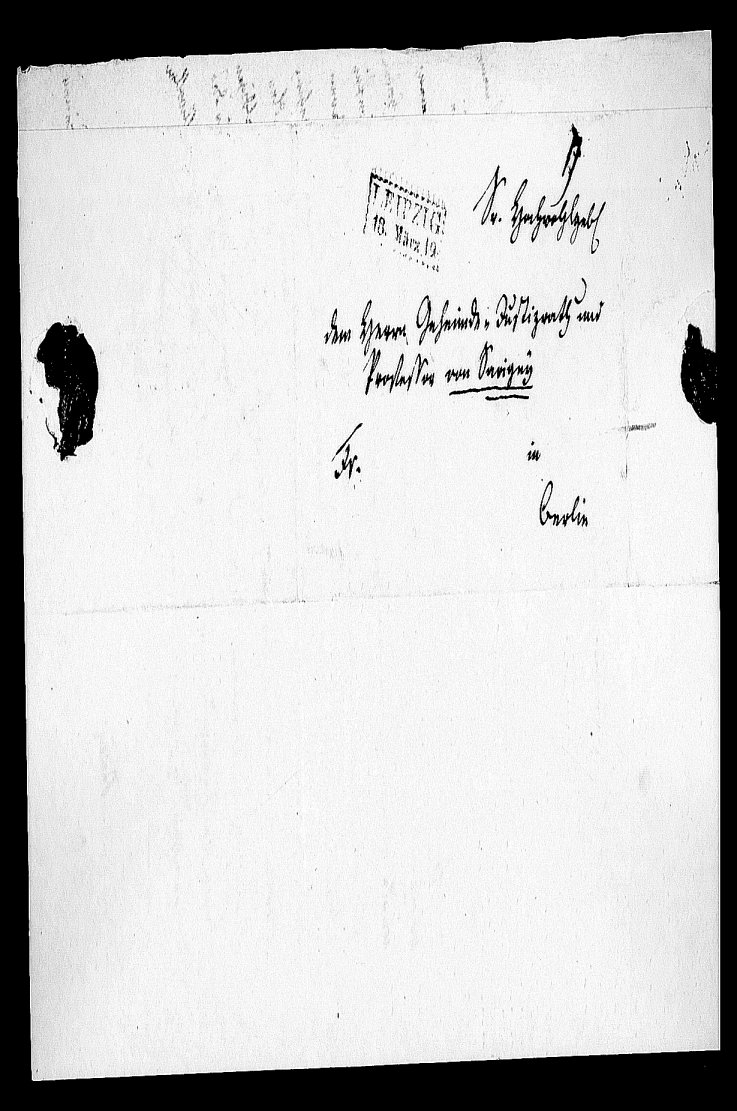 LEIPZIG
18. März 19.
Sr. Hochwohlgeb
dem Herrn Geheimde-Justizrath und
Professor von Savigny
Fr.
in
Berlin